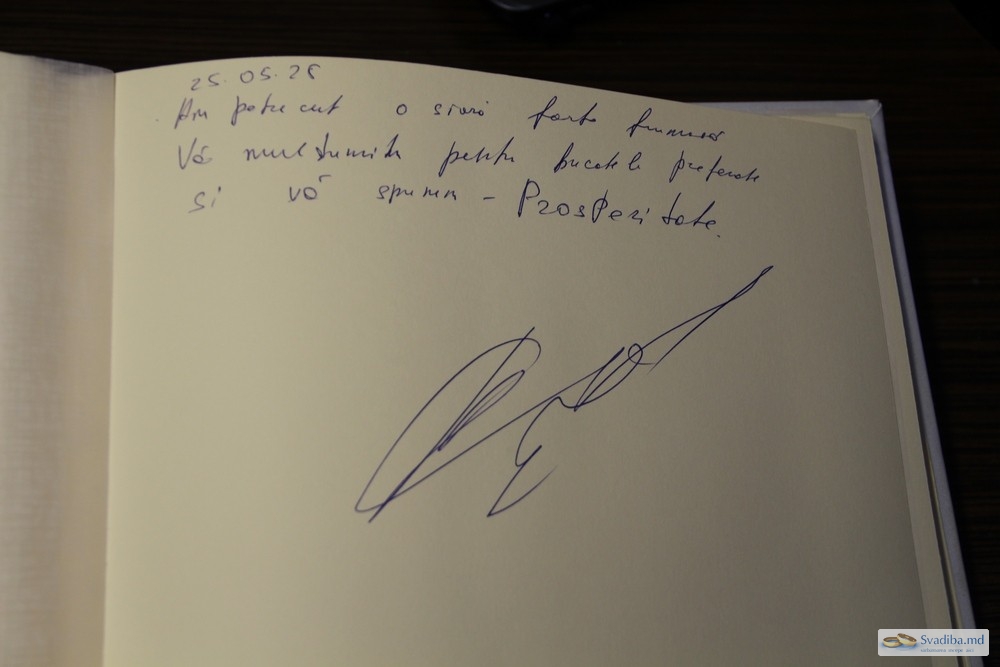 25.05.28
Am petrecut o siară foarte frumoasă
Vă mulțumim pentru bucatele preferate
si vă spunem - Prosperitate.
Svadiba.md